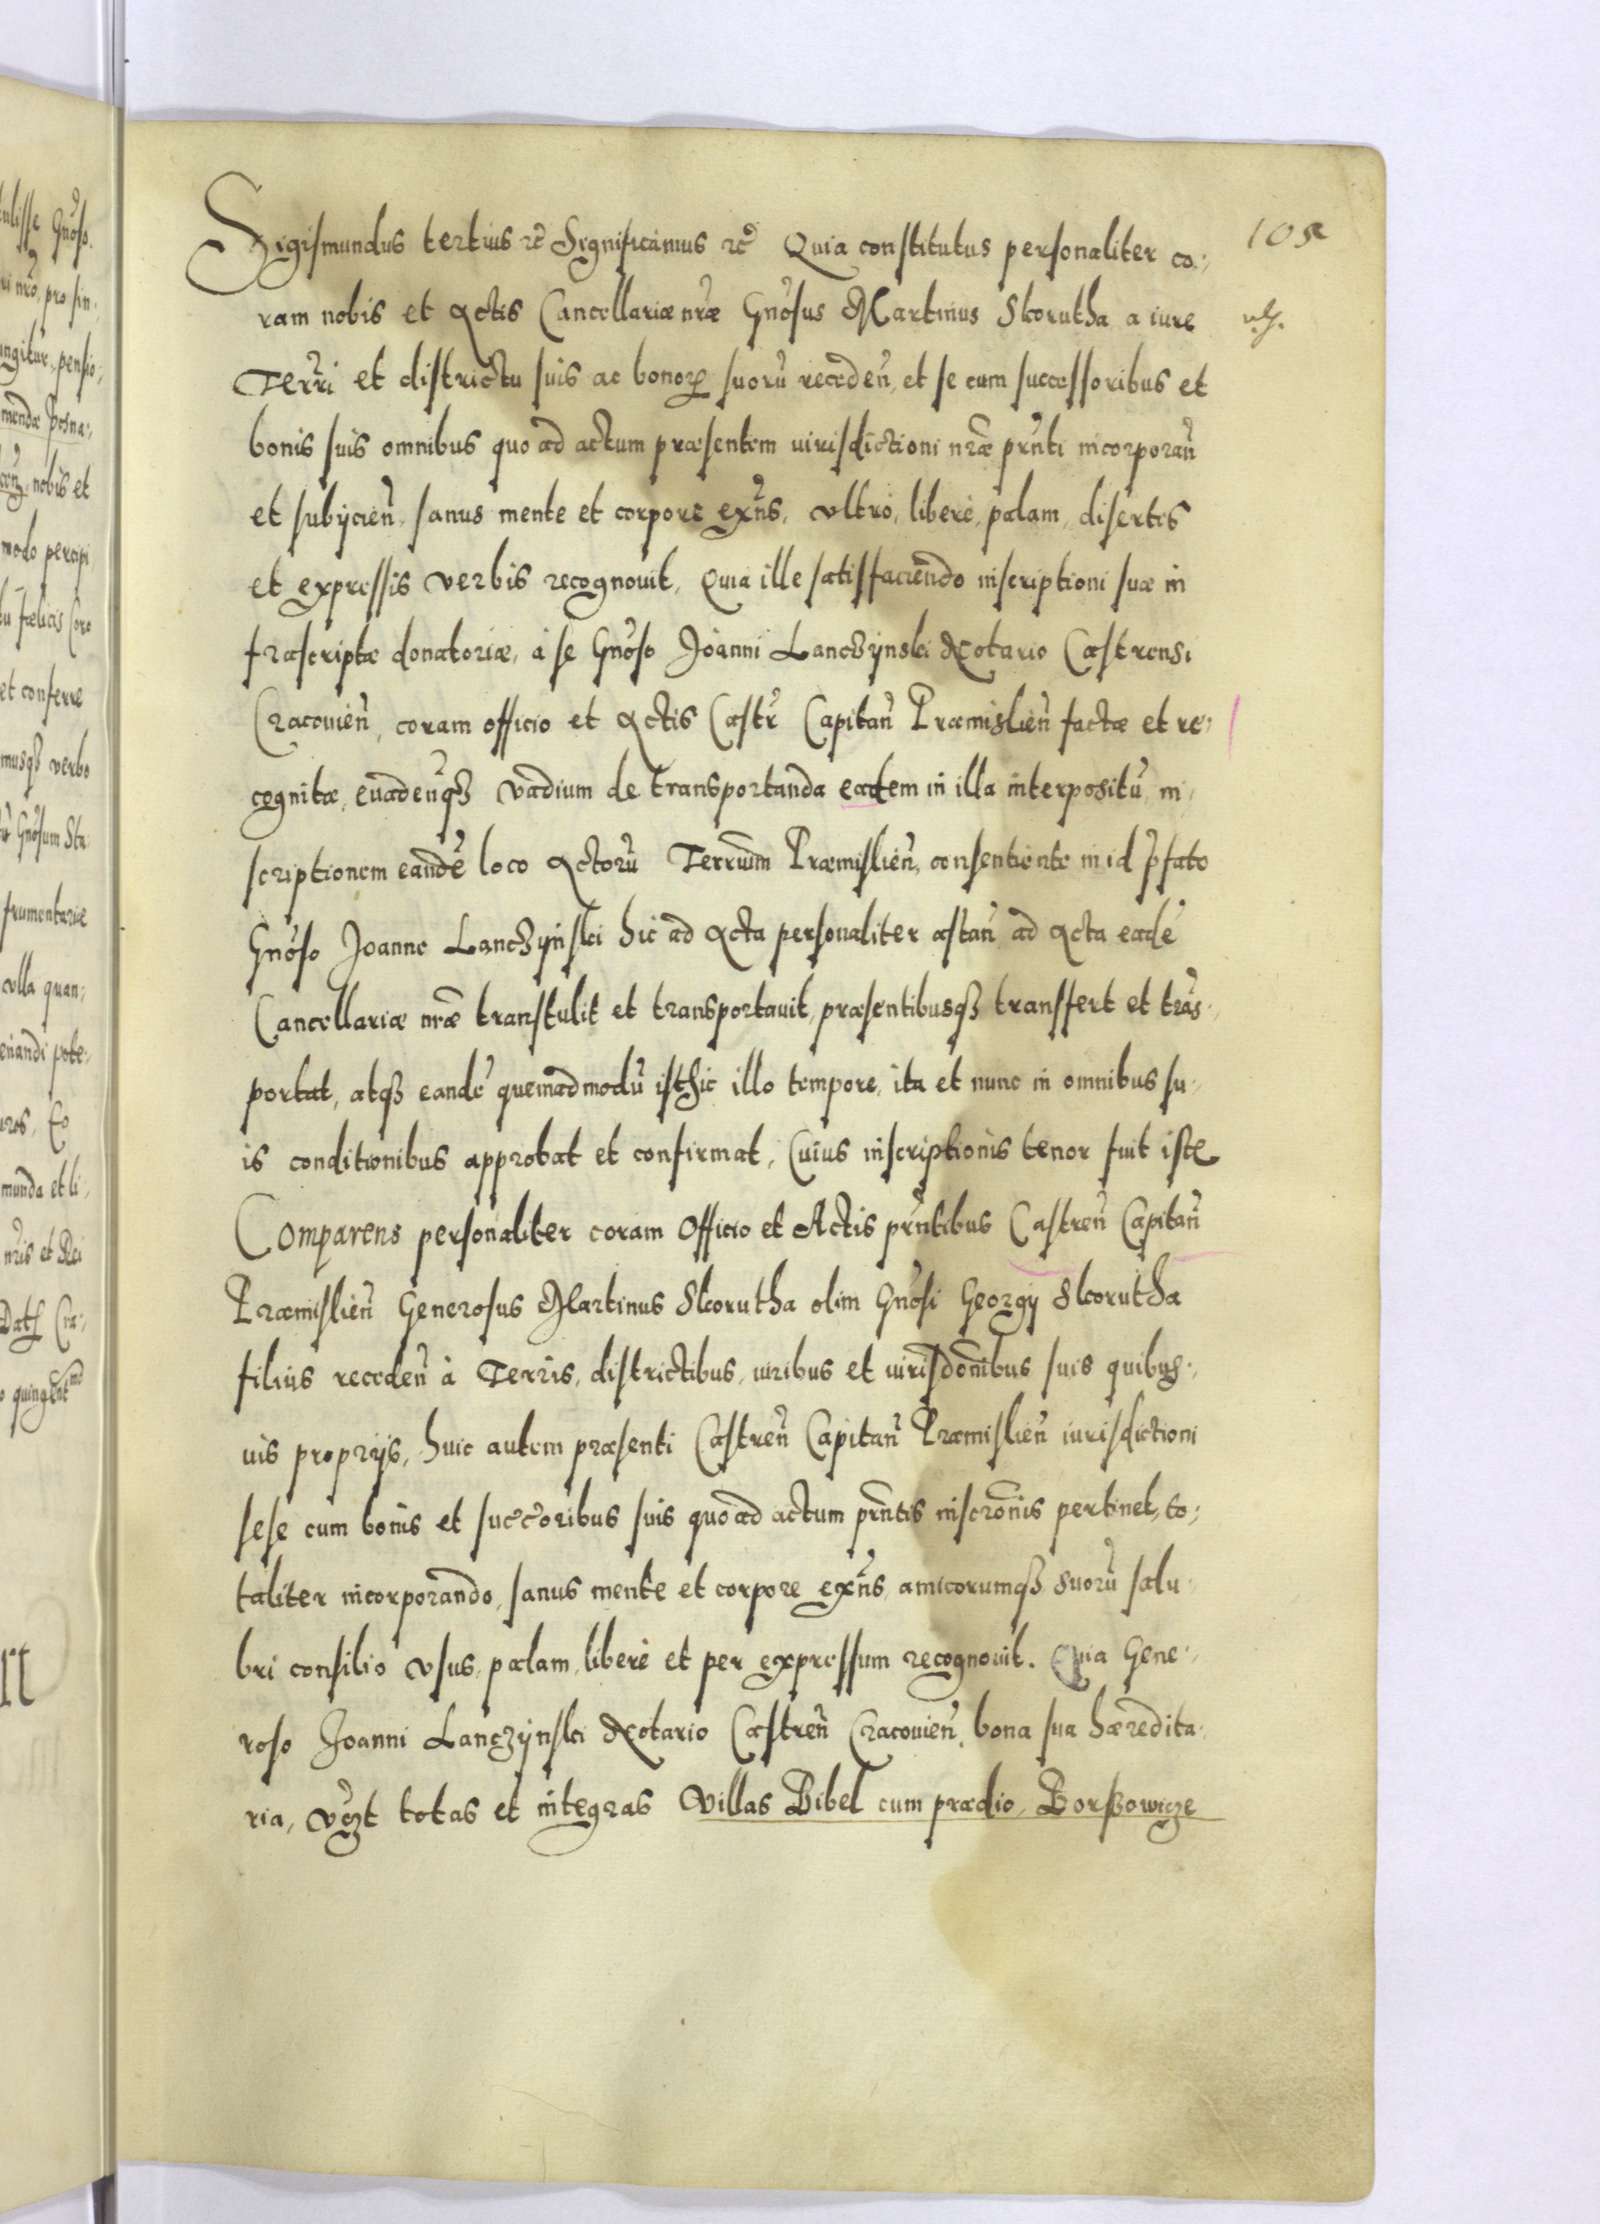 105
Sigismundus tertius &c̃ Significamus &c̃ Quia constitutus personaliter co:
ram nobis et Actis Cancellariæ nr̃æ Gn̄osus Martinus Skorutha a iure
Terr̃i et districtu suis ac bonor̨ suorũ receden̄, et se cum successoribus et
bonis suis omnibus quo ad actum præsentem iurisdictioni nr̃æ pr̃nti incorporan̄
et subijcien̄, sanus mente et corpore exn̄s, vltro, liberè, palam, disertis
et expressis verbis recognouit, Quia ille satisfaciendo inscriptioni suæ in
frascriptæ donatoriæ, à se Gn̄oso Joanni Lanczijnski Notario Castrensi
Cracouien̄, coram officio et Actis Castr̃ Capitan̄ Præmislien̄ factæ et re:
cognitæ, euadenq̃ vadium de transportanda eadem in illa interpositũ, in:
scriptionem eandẽ loco Actorũ Terrĩum Præmislien̄, consentiente in id p̃fato
Gn̄oso Joanne Lanczijnski hic ad Acta personaliter astan̄ ad Acta eadẽ
Cancellariæ nr̃æ transtulit et transportauit, præsentibusq3 transfert et trãs:
portat, atq3 eandẽ quemadmodũ isthic illo tempore, ita et nunc in omnibus su:
is conditionibus approbat et confirmat, Cuius inscriptionis tenor fuit iste
Comparens personaliter coram Officio et Actis pr̃ntibus Castren̄ Capitan̄
Præmislien̄ Generosus Martinus Skorutha olim Gn̄osi Georgij Skorutha
filius receden̄ à Terris, districtibus, iuribus et iurisdõnibus suis quibus:
uis proprijs, huic autem præsenti Castren̄ Capitan̄ Præmislien̄ iurisdictioni
sese cum bonis et succ̃oribus suis quo ad actum pr̃ntis inscrõnis pertinet, to:
taliter incorporando, sanus mente et corpore exn̄s, amicorumq3 suorũ salu:
bri consilio vsus, palam, liberè et per expressum recognouit. Quia Gene:
roso Joanni Lanczijnski Notario Castren̄ Cracouien̄, bona sua hæredita:
ria, vg̃zt totas et integras Villas Bibel cum prædio, Borszowicze